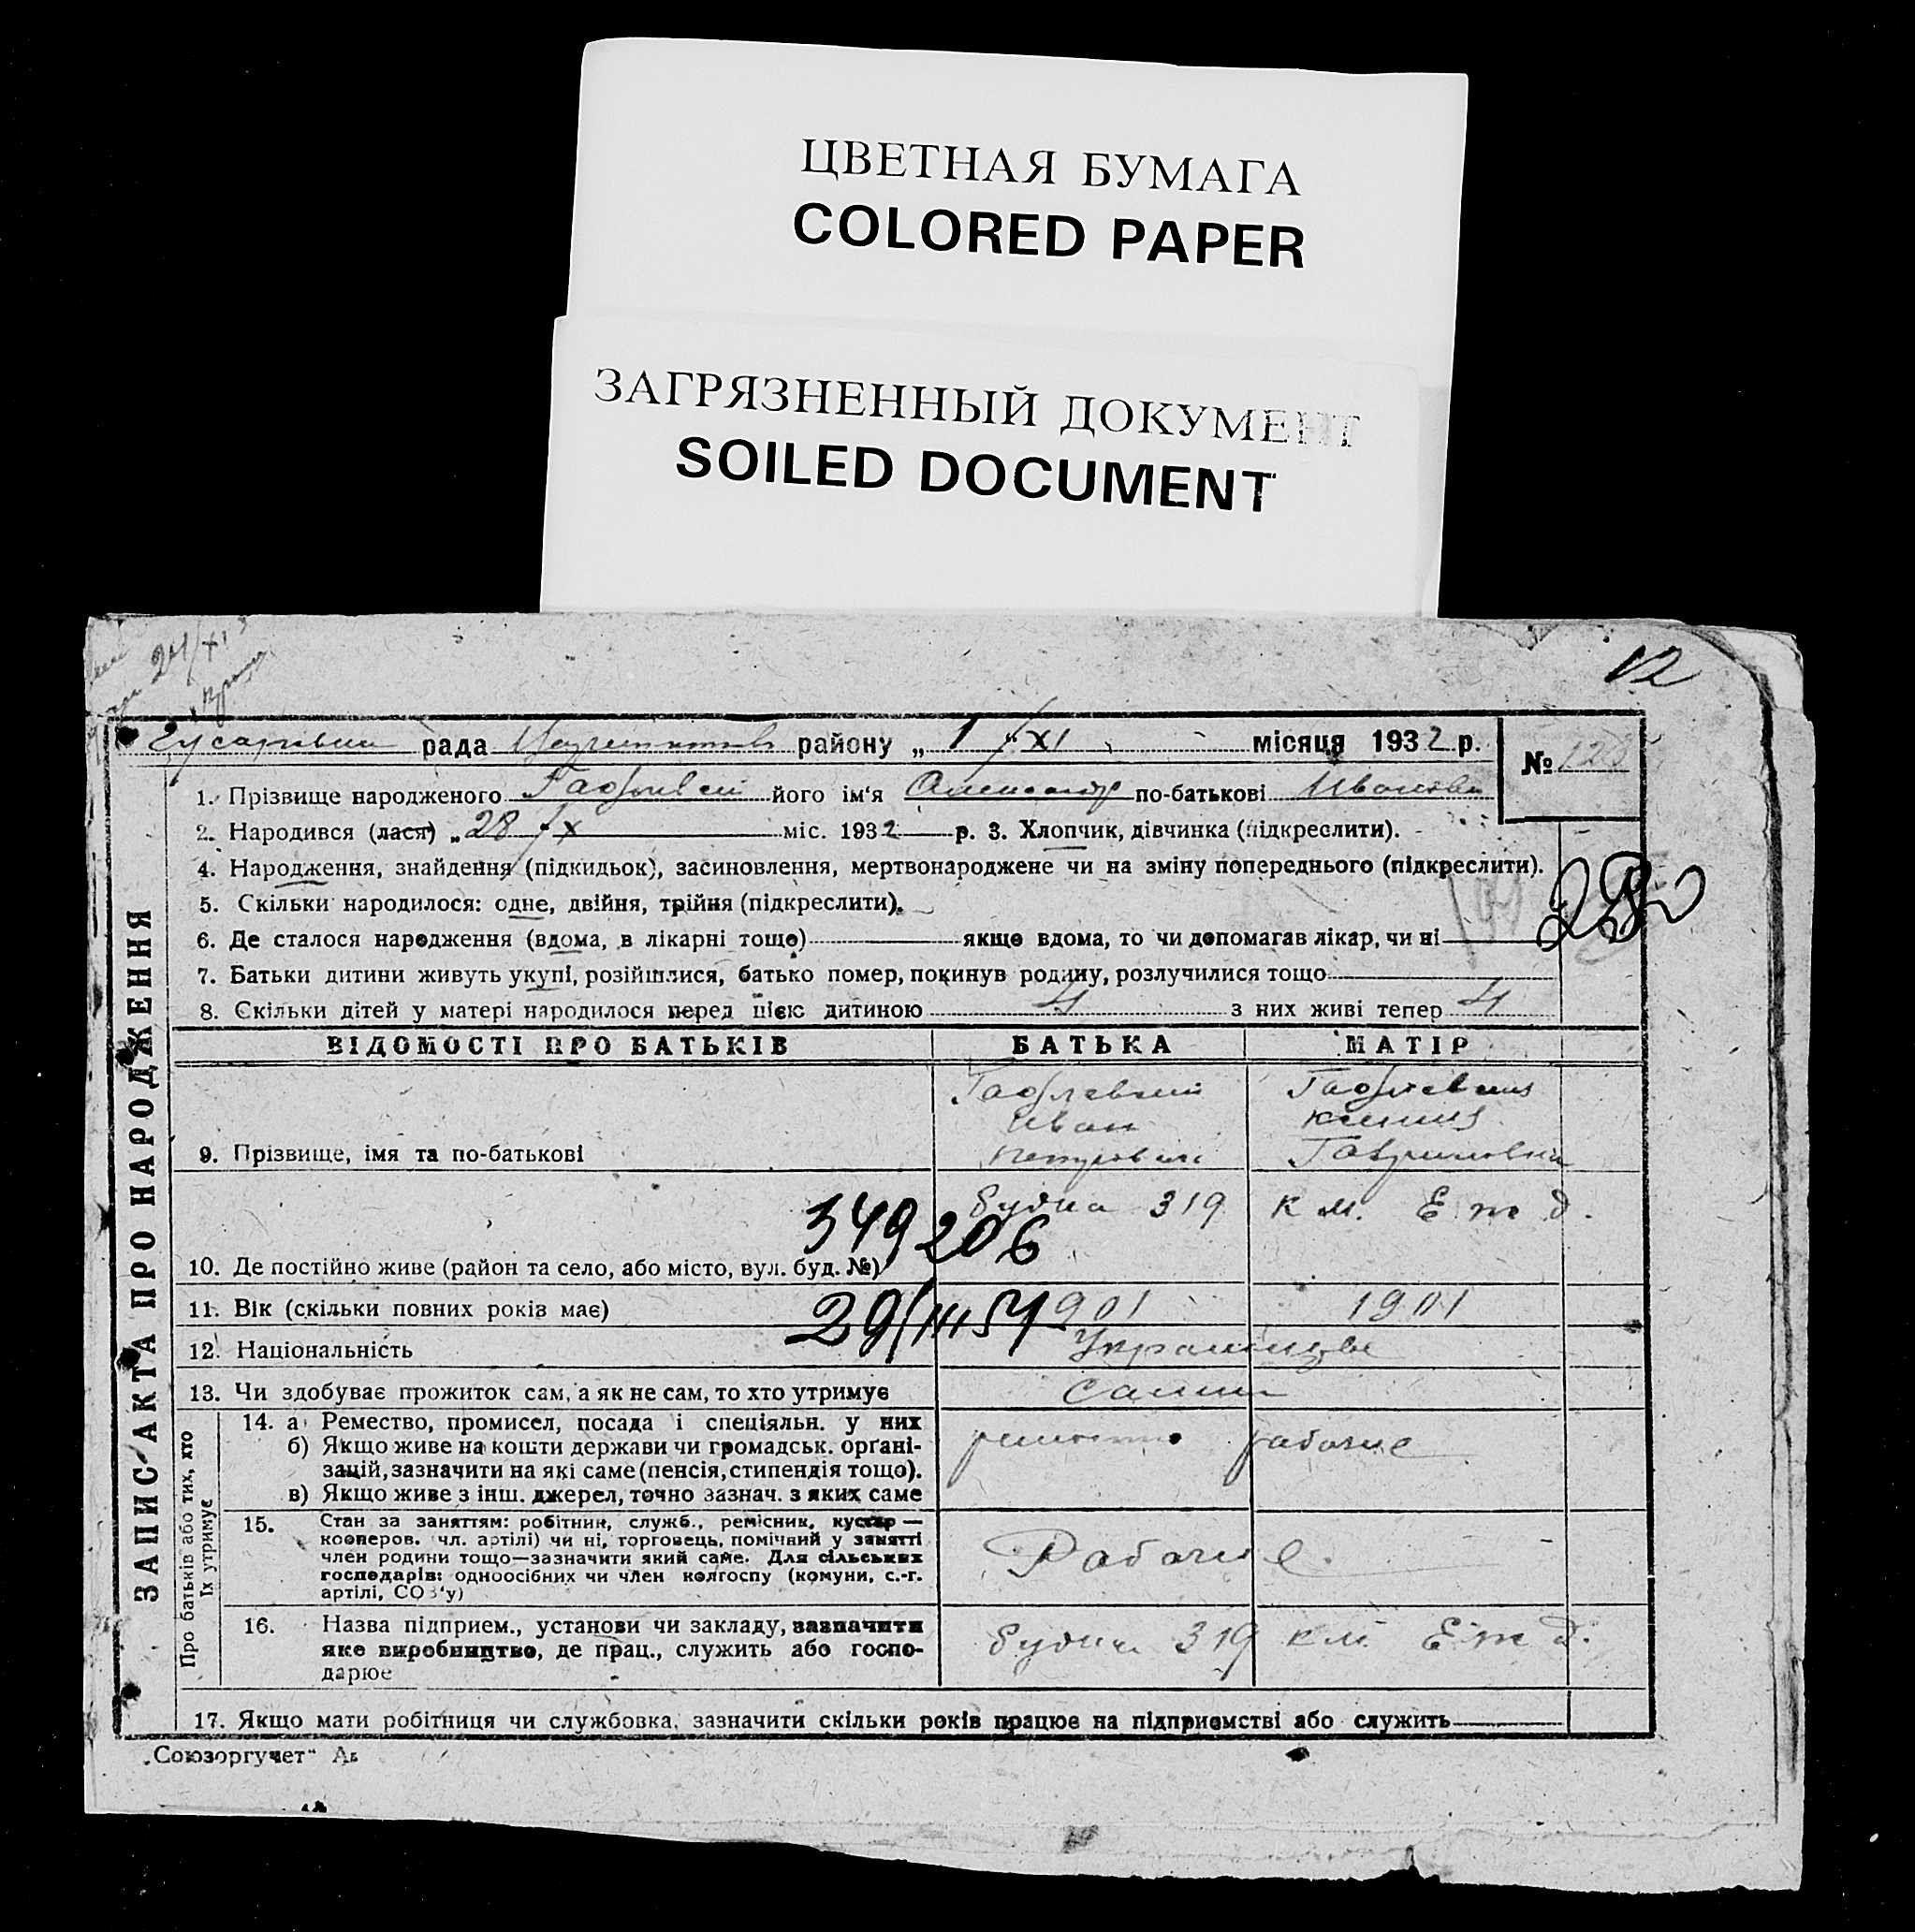 ЦВЕТНАЯ БУМАГА
COLORED PAPER
ЗАГРЯЗНЕННЫЙ ДОКУМЕНТ
SOILED DOCUMENT
24/XI
12
рада району „ 1 / XI місяця 1932 р.
№ 123
1. Прізвище народженого його ім‘я Александр по-батькові Иванович
2. Народився (лася) „28 / X міс. 1932 р. 3. Хлопчик, дівчинка (підкреслити).
4. Народження, знайдення (підкидьок), засиновлення, мертвонароджене чи на зміну попереднього (підкреслити).
5. Скільки народилося: одне, двійня, трійня (підкреслити).
6. Де сталося народження (вдома, в лікарні тощо) якще вдома, то чи допомагав лікар, чи ні
7. Батьки дитини живуть укупі, розійшлися, батько помер, покинув родину, розлучилися тощо
8. Скільки дітей у матері народилося перед цією дитиною 4 з них живі тепер 4
ЗАПИС АКТА ПРО НАРОДЖЕННЯ
ВІДОМОСТІ ПРО БАТЬКІВ БАТЬКА МАТІР
Иван
9. Прізвище, імя та по-батькові Петрович Гавриловна
будка 319 км. Е ж д.
349206
10. Де постійно живе (район та село, або місто, вул. буд. №)
29/III 57
11. Вік (скільки повних років має) 1901 1901
12. Національність Украинцы
13. Чи здобуває прожиток сам, а як не сам, то хто утримує сами
Про батьків або тих, хто їх утримує
14. а) Ремество, промисел, посада і спеціяльн. у них
б) Якщо живе на кошти держави чи громадськ. органі-
зацій, зазначити на які саме (пенсія, стипендія тощо).
в) Якщо живе з інш. джерел, точно зазнач. з яких саме
рабочие
15. Стан за заняттям: робітник, служб., ремісник, кустар —
кооперов. чл. артілі) чи ні, торговець, помічний у занятті
член родини тощо—зазначити який саме. Для сільських
господарів: одноосібних чи член колгоспу (комуни, с.-г.
артілі, СОЗ‘у)
Рабочие
16. Назва підприєм., установи чи закладу, зазначити
яке виробництво, де прац., служить або госпо-
дарює
будка 319 км. Е ж д.
17. Якщо мати робітниця чи службовка, зазначити скільки років працює на підприємстві або служить
„Союзоргучет“